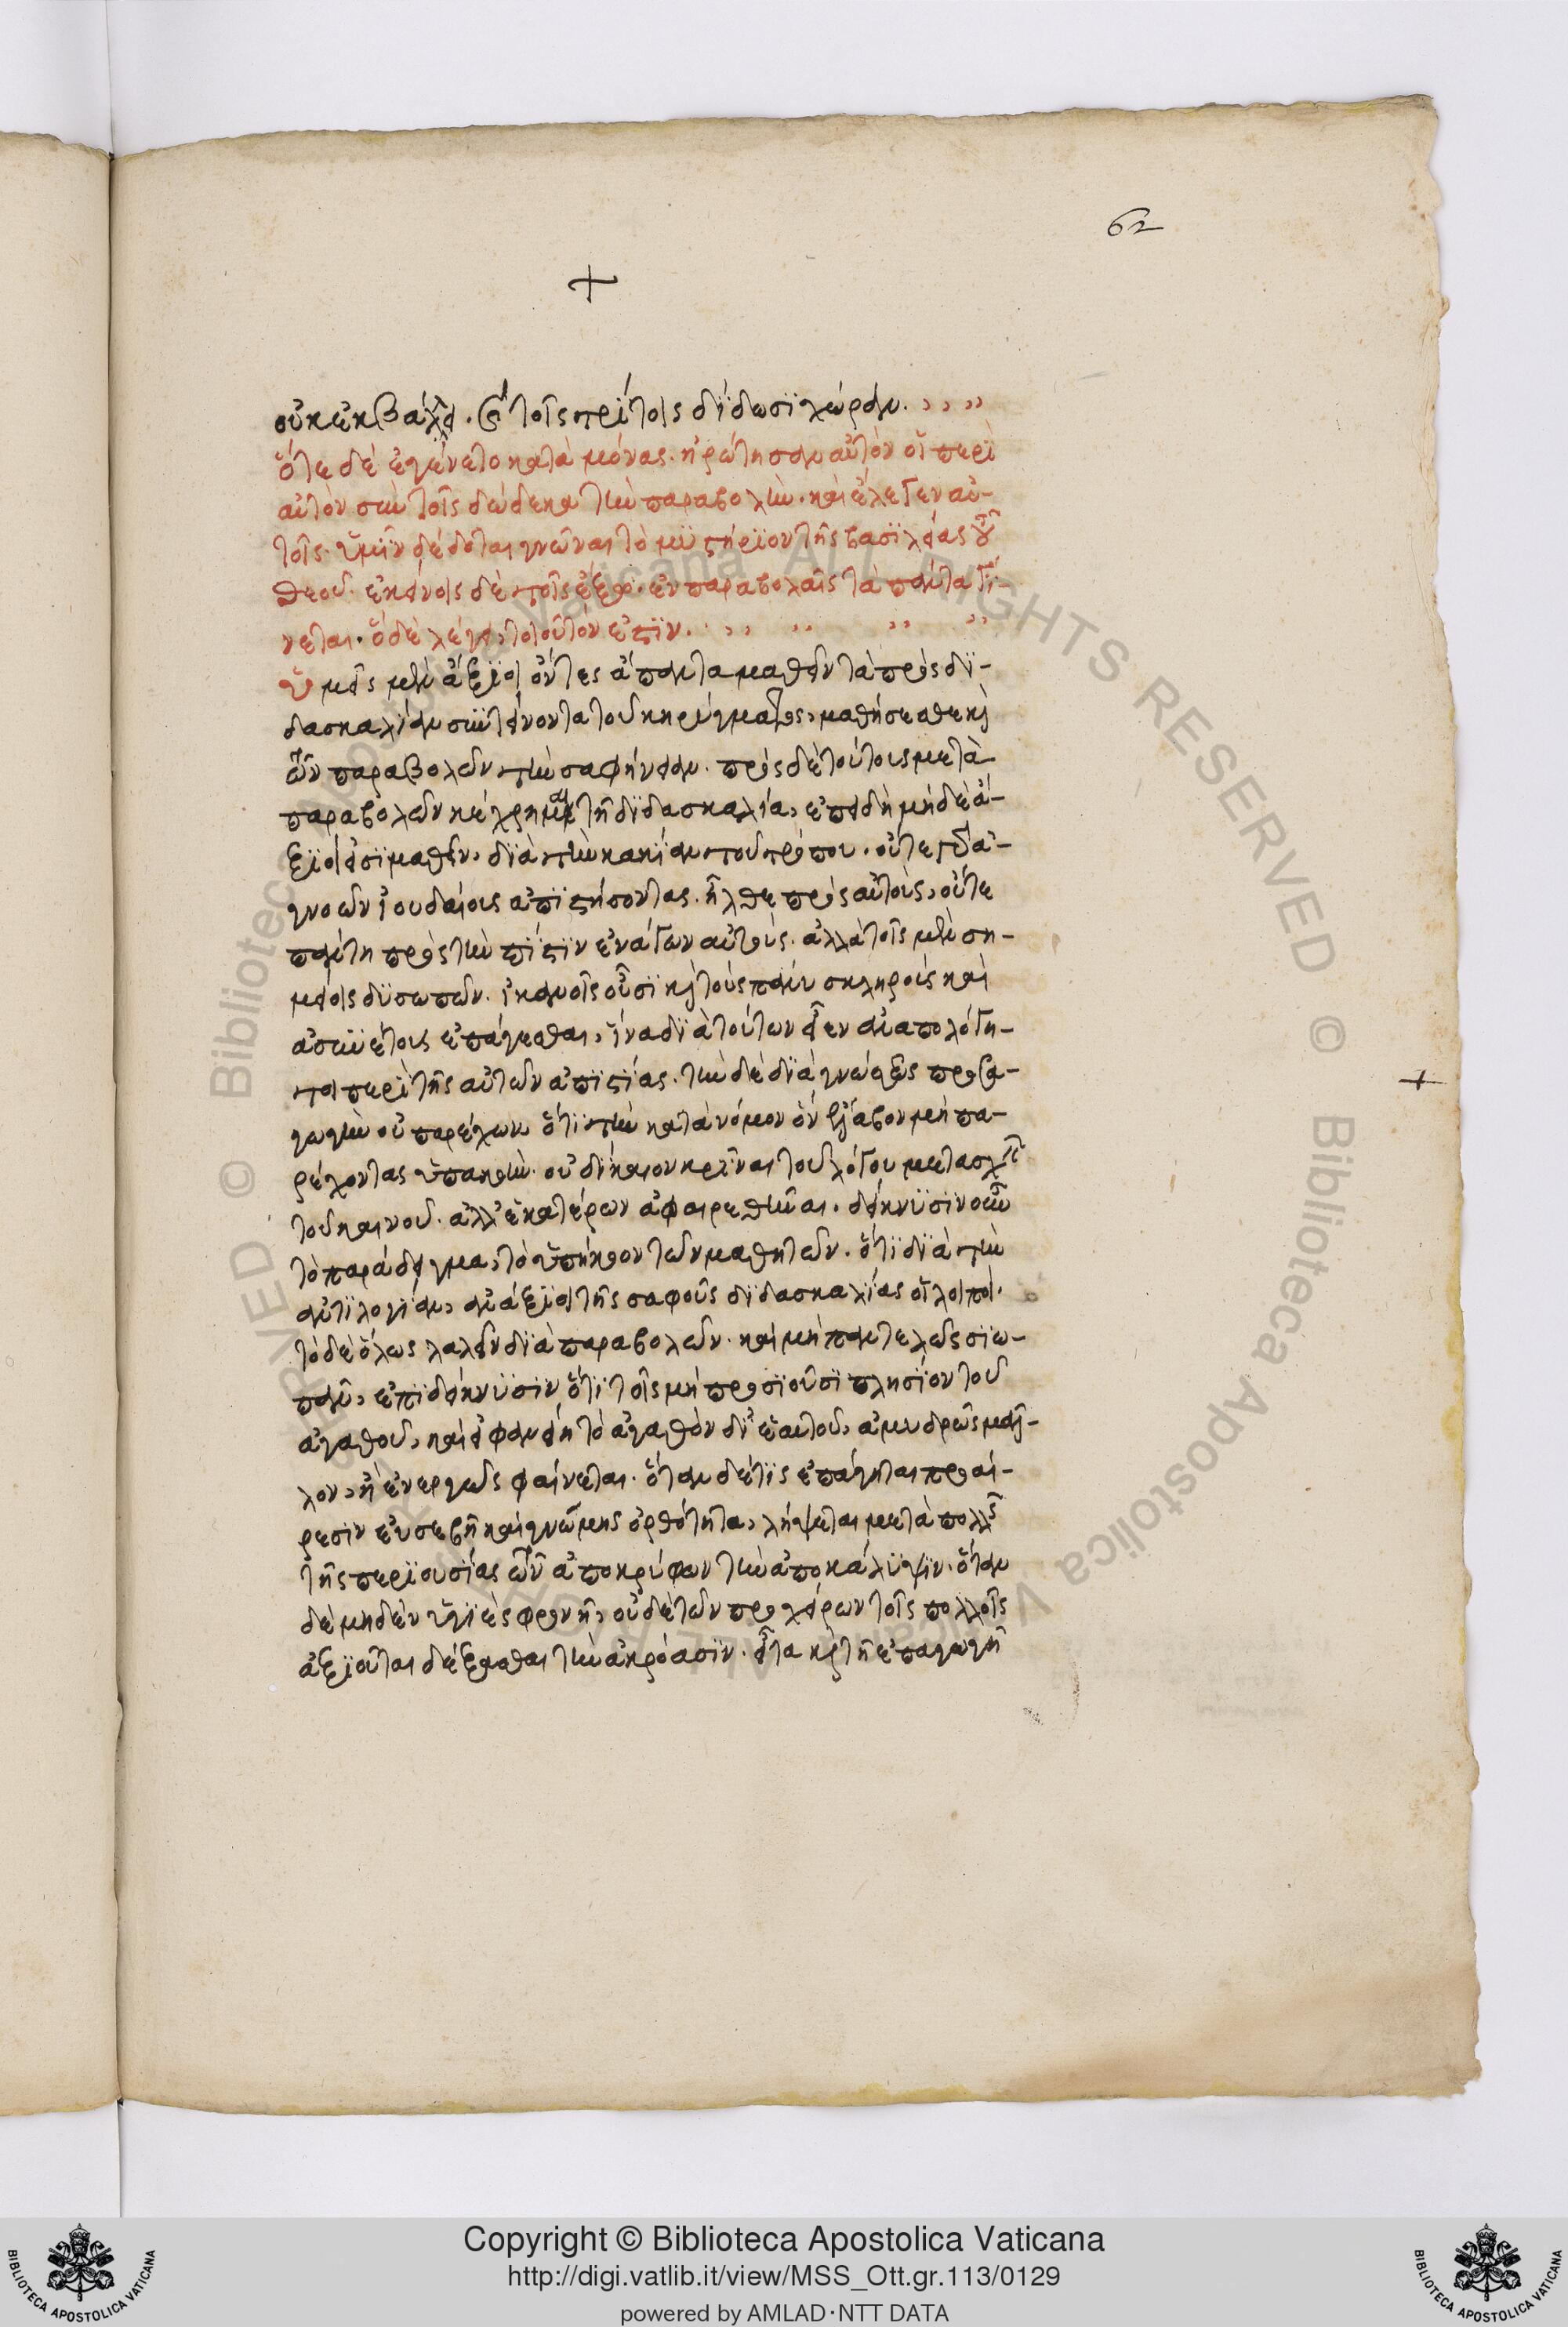 62
+
οὐκ ἐκβάλλει. καὶ τοῖς τρίτοις δίδωσι χώραν.
ὅτε δὲ ἐγένετο κατὰ μόνας. ἠρώτησαν αὐτὸν οἱ περὶ
αὐτὸν σὺν τοῖς δώδεκα τὴν παραβολήν. καὶ ἔλεγεν αὐ-
τοῖς. ὑμῖν δέδοται γνῶναι τὸ μυστήριον τῆς βασιλείας τοῦ
θεοῦ. ἐκείνοις δὲ τοῖς ἔξω. ἐν παραβολαῖς τὰ πάντα γί-
νεται. ὃ δὲ λέγει, τοιοῦτόν ἐστιν.
ὑμεῖς μὲν ἄξιοι ὄντες ἅπαντα μαθεῖν τὰ πρὸς δι-
δασκαλίαν συντείνοντα τοῦ κηρύγματος, μαθήσεσθε καὶ
τῶν παραβολῶν τὴν σαφήνειαν. πρὸς δὲ τούτους μετὰ
παραβολῶν κέχρημαι τῇ διδασκαλίᾳ, ἐπειδὴ μὴ δὲ ἄ-
ξιοί εἰσι μαθεῖν, διὰ τὴν κακίαν τοῦ τρόπου. οὔτε γὰρ ἀ-
γνοῶν ἰουδαίους ἀπιστήσοντας. ἦλθε πρὸς αὐτούς, οὔτε
πάντη πρὸς τὴν πίστιν ἐνάγων αὐτούς. ἀλλὰ τοῖς μὲν ση-
μείοις δυσωπῶν. ἱκανοῖς οὖσι καὶ τοὺς πάνυ σκληροὺς καὶ
ἀσυνέτους ἐπάγεσθαι, ἵνα διὰ τούτων εἶεν ἀναπολόγη-
τοι περὶ τῆς αὐτῶν ἀπιστίας. τὴν δὲ διὰ γνώσεως προσα-
γωγὴν οὐ παρέχων, ὅτι τὴν κατὰ νόμον ὃν ἔλαβον μὴ πα-
ρέχοντας ὑπακοήν. οὐ δίκαιον κρῖναι τοῦ λόγου μετασχεῖν
τοῦ καινοῦ. ἀλλ' ἑκατέρων ἀφαιρεθῆναι. δείκνυσιν οὖν
τὸ παράδειγμα, τὸ ὑπήκοον τῶν μαθητῶν. ὅτι διὰ τὴν
ἀντιλογίαν, ἀνάξιοι τῆς σαφοῦς διδασκαλίας οἱ λοιποί.
τὸ δὲ ὅλως λαλεῖν διὰ παραβολῶν. καὶ μὴ παντελῶς σιω-
πᾶν, ἐπιδείκνυσιν ὅτι τοῖς μὴ προσιοῦσι πλησίον τοῦ
ἀγαθοῦ, καὶ εἰ φανείη τὸ ἀγαθὸν δι' ἑαυτοῦ, ἀμυδρῶς μᾶλ-
λον, ἢ ἐνεργῶς φαίνεται. ὅταν δέ τις ἐπάγηται προαί-
ρεσιν εὐσεβῆ καὶ γνώμης ὀρθότητα, λήψεται μετὰ πολλῆς
τῆς περιουσίας τῶν ἀποκρύφων τὴν ἀποκάλυψιν. ὅταν
δὲ μηδὲν ὑγιὲς φρονῇ, οὐδὲ τῶν προχείρων τοῖς πολλοῖς
ἀξιοῦται δέξασθαι τὴν ἀκρόασιν. εἶτα καὶ τῇ ἐπαγωγῇ
Copyright © Biblioteca Apostolica Vaticana
http://digi.vatlib.it/view/MSS_Ott.gr.113/0129
powered by AMLAD·NTT DATA